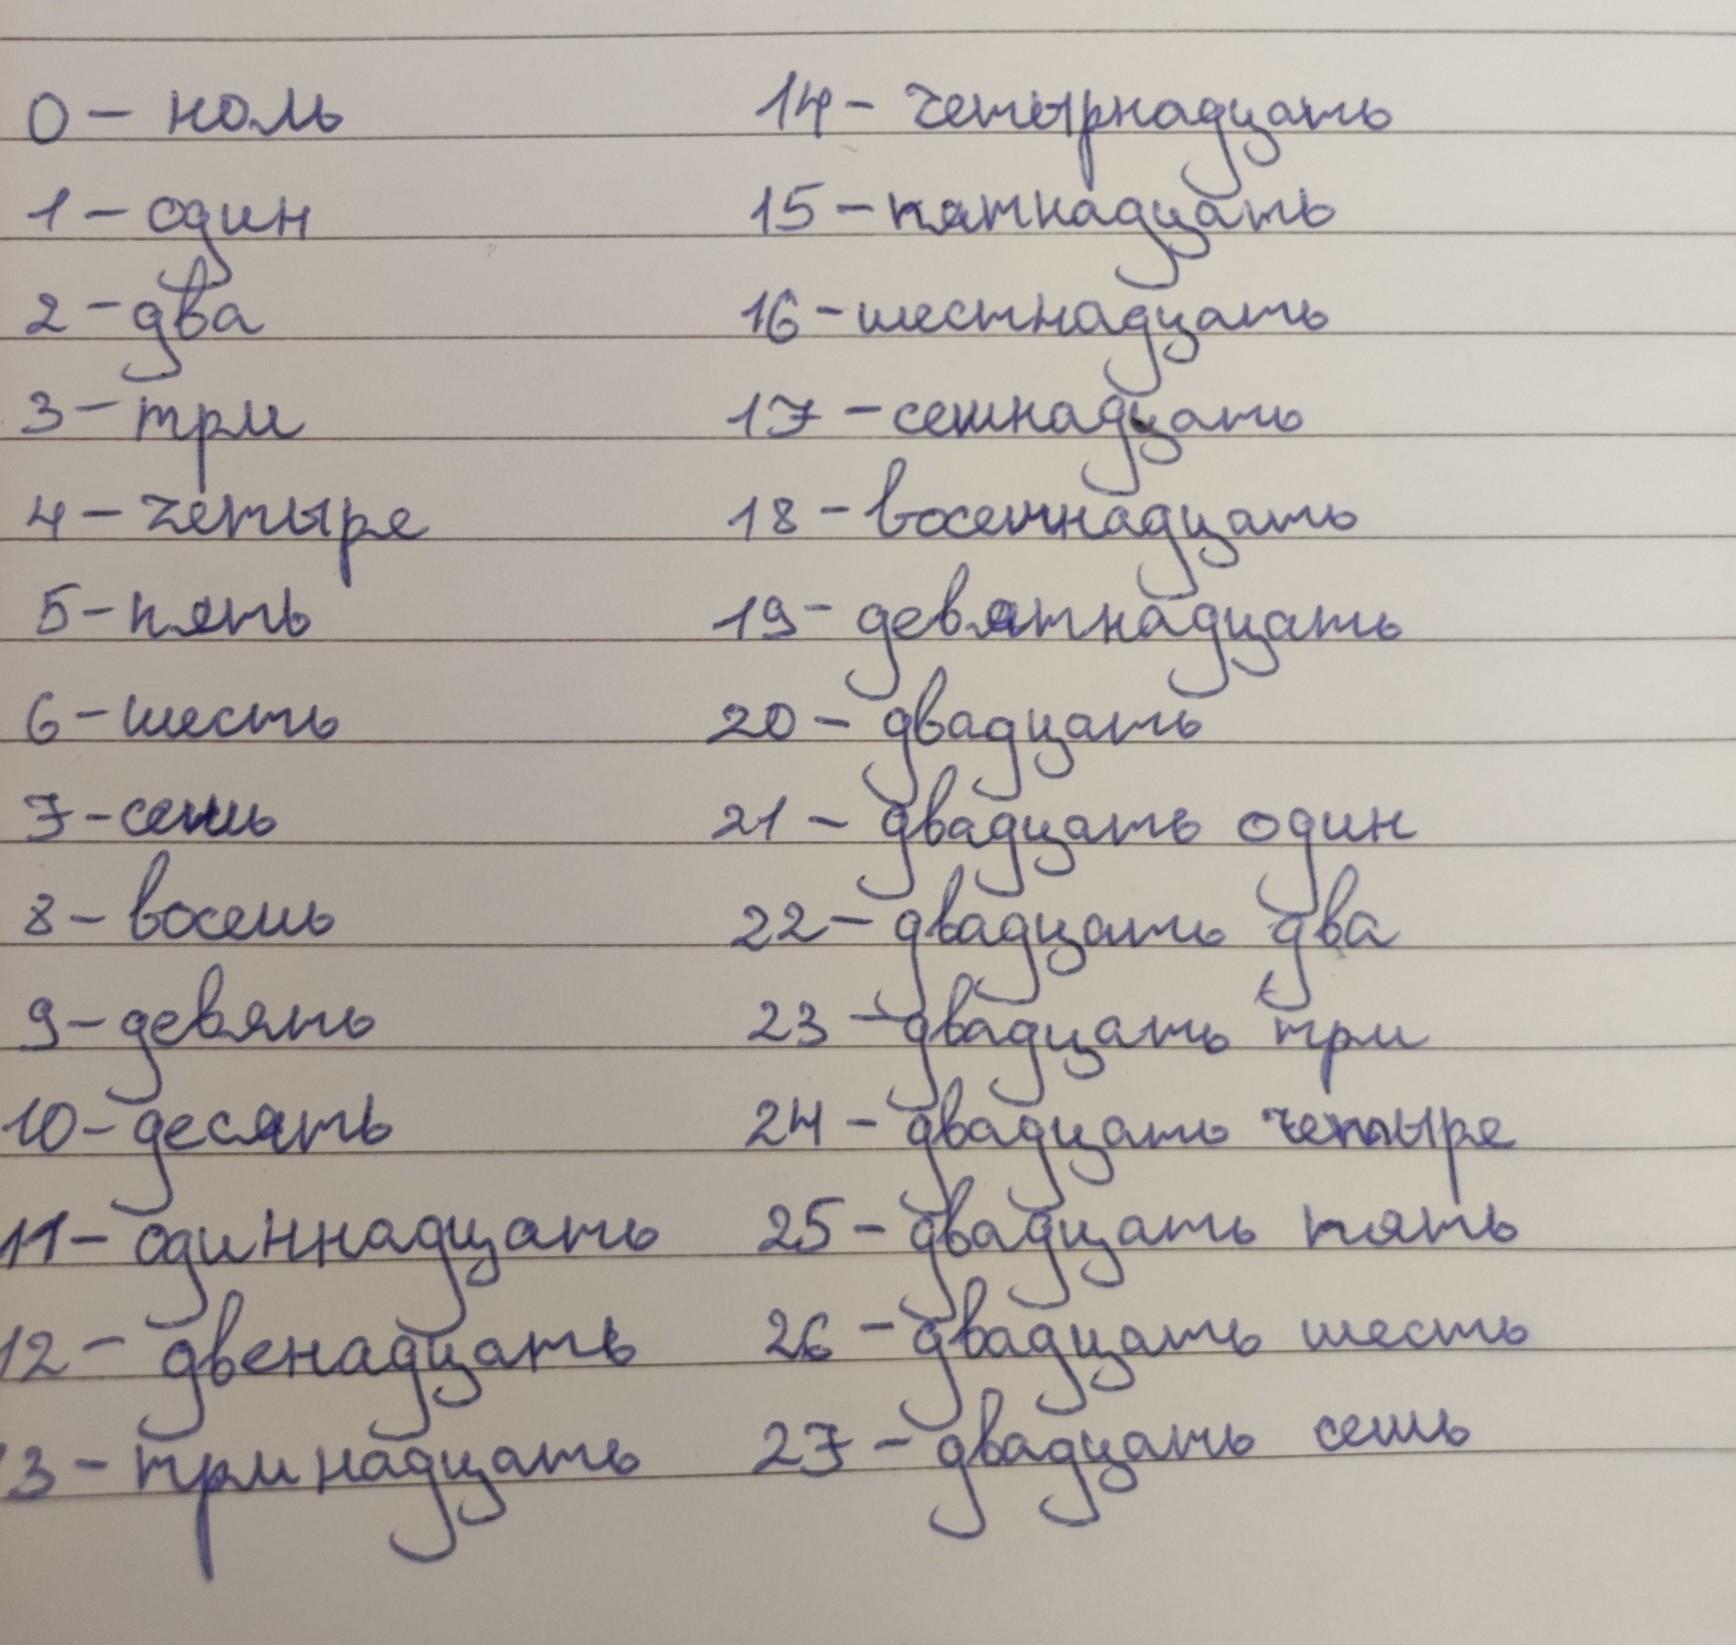 0 – ноль
1 – один
2 – два
3 – три
4 – четыре
5 – пять
6 – шесть
7 – семь
8 – восемь
9 – девять
10 – десять
11 – одиннадцать
12 – двенадцать
13 – тринадцать
14 – четырнадцать
15 – пятнадцать
16 – шестнадцать
17 – семнадцать
18 – восемнадцать
19 – девятнадцать
20 – двадцать
21 – двадцать один
22 – двадцать два
23 – двадцать три
24 – двадцать четыре
25 – двадцать пять
26 – двадцать шесть
27 – двадцать семь